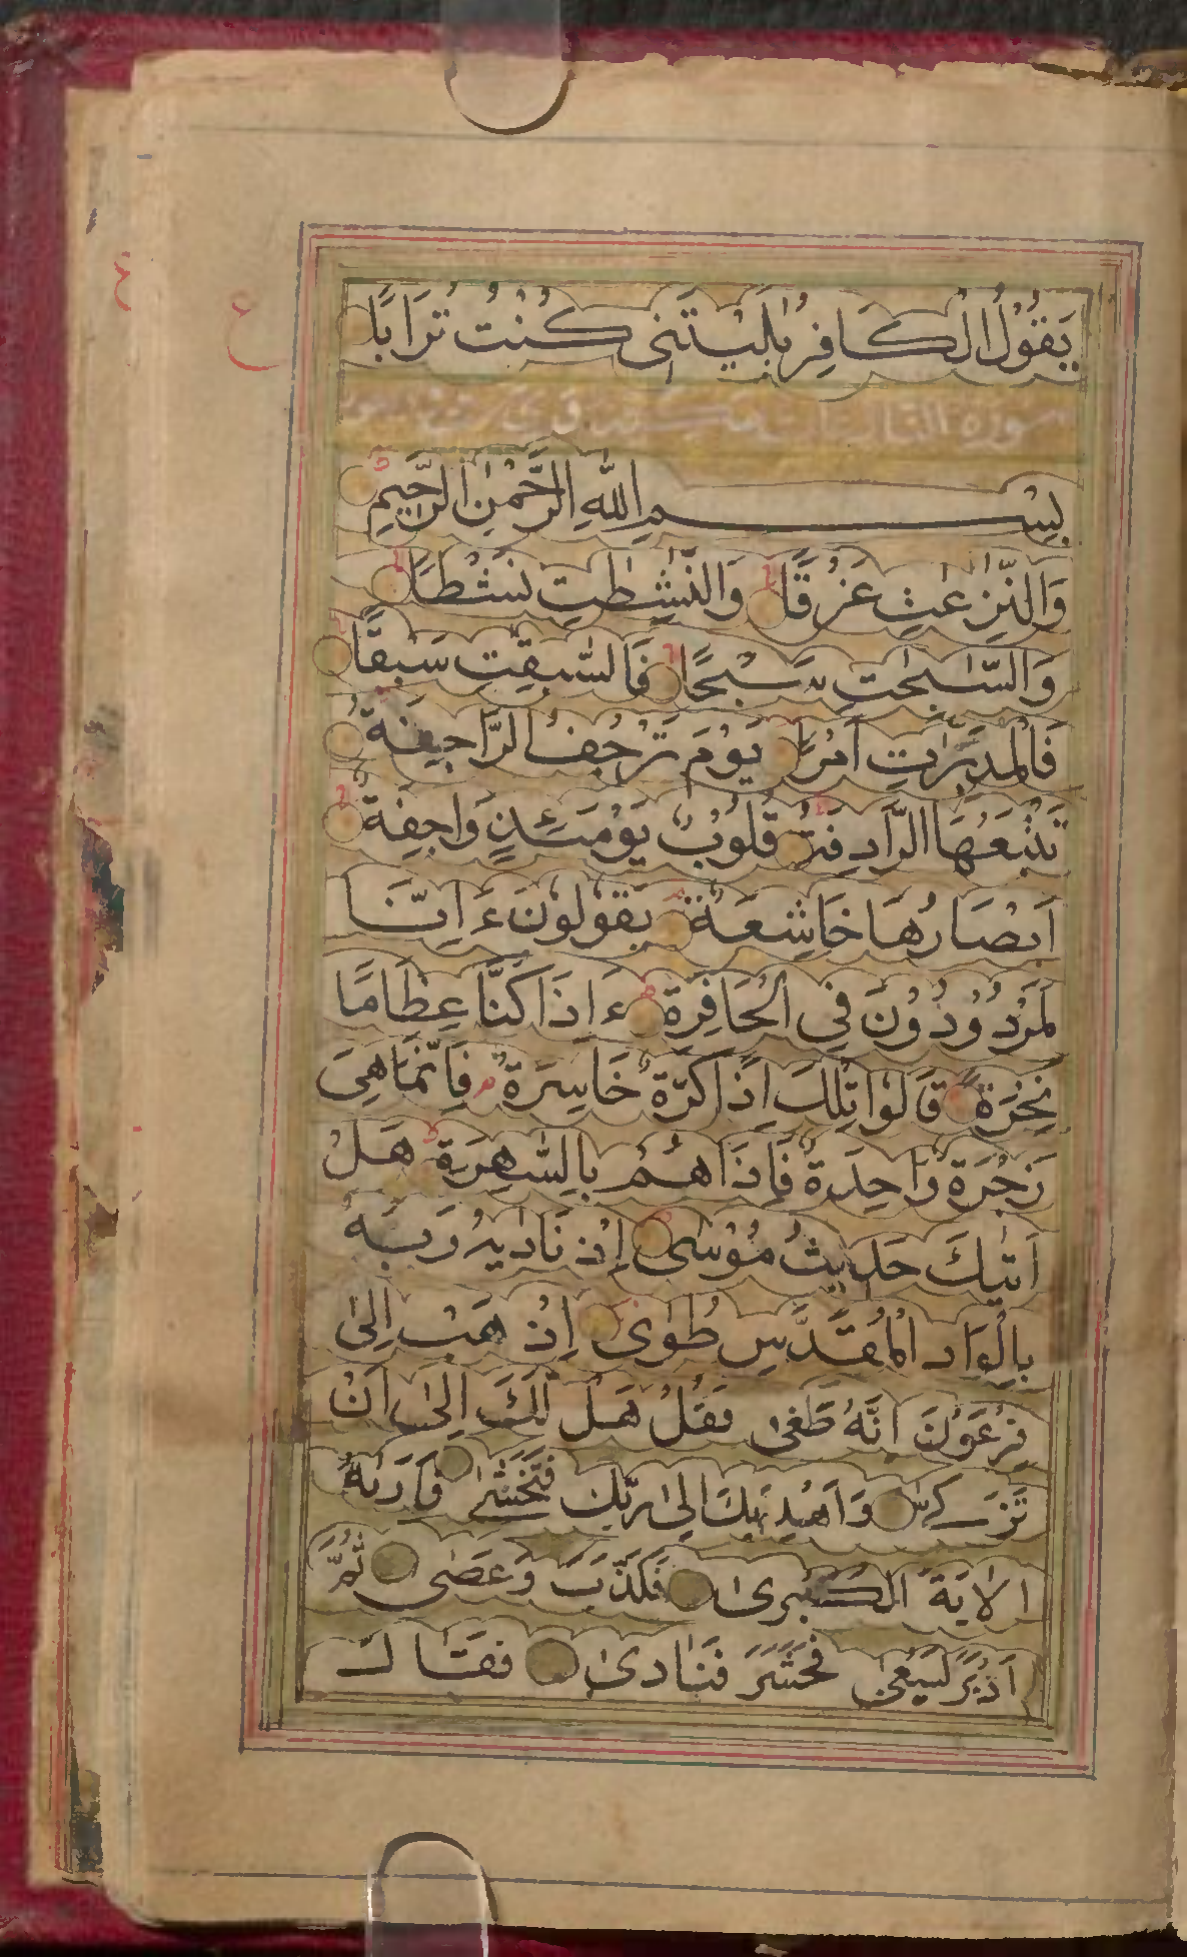 يَقُوْلُ الْكَافِرُ يٰلَيْتَنِى كُنْتُ تُرَابًا
سورة النازعات
بِسْمِ اللّٰهِ الرَّحْمٰنِ الرَّحِيْمِ
وَالنّٰزِعٰتِ غَرْقًا وَالنّٰشِطٰتِ نَشْطًا
وَالسّٰبِحٰتِ سَبْحًا فَالسّٰبِقٰتِ سَبْقًا
فَالْمُدَبِّرٰتِ اَمْرًا يَوْمَ تَرْجُفُ الرَّاجِفَةُ
تَتْبَعُهَا الرَّادِفَةُ قُلُوْبٌ يَّوْمَئِذٍ وَّاجِفَةٌ
اَبْصَارُهَا خَاشِعَةٌ يَقُوْلُوْنَ ءَاِنَّا
لَمَرْدُوْدُوْنَ فِي الْحَافِرَةِ ءَاِذَا كُنَّا عِظَامًا
نَّخِرَةً قَالُوْا تِلْكَ اِذًا كَرَّةٌ خَاسِرَةٌ فَاِنَّمَا هِيَ
زَجْرَةٌ وَّاحِدَةٌ فَاِذَا هُمْ بِالسَّاهِرَةِ هَلْ
اَتٰيكَ حَدِيْثُ مُوْسٰى اِذْ نَادٰيهُ رَبُّهُ
بِالْوَادِ الْمُقَدَّسِ طُوًى اِذْهَبْ اِلٰى
فِرْعَوْنَ اِنَّهُ طَغٰى فَقُلْ هَلْ لَّكَ اِلٰى اَنْ
تَزَكّٰى وَاَهْدِيَكَ اِلٰى رَبِّكَ فَتَخْشٰى فَاَرٰىهُ
الْاٰيَةَ الْكُبْرٰى فَكَذَّبَ وَعَصٰى ثُمَّ
اَدْبَرَ يَسْعٰى فَحَشَرَ فَنَادٰى فَقَالَ